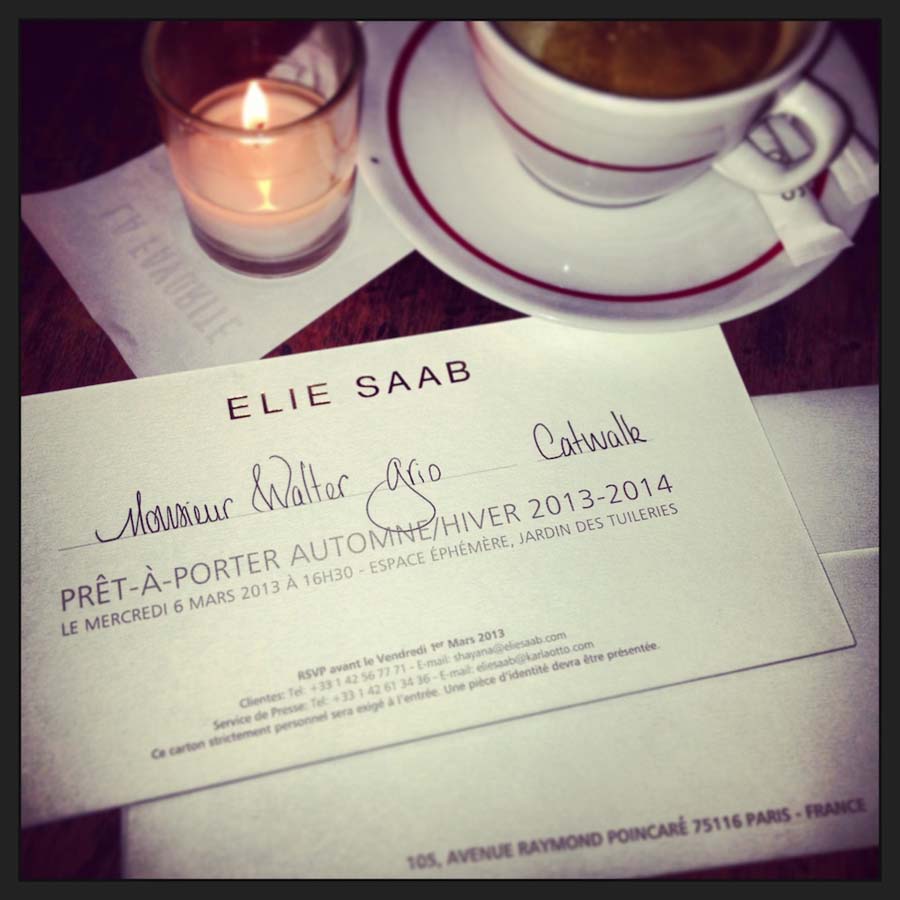 ELIE SAAB
Monsieur Walter Grio Catwalk
PRÊT-À-PORTER AUTOMNE/HIVER 2013-2014
LE MERCREDI 6 MARS 2013 À 16H30 - ESPACE ÉPHÉMÈRE, JARDIN DES TUILERIES
RSVP avant le Vendredi 1er Mars 2013
Clientes: Tel: +33 1 42 56 77 71 - E-mail: shayana@eliesaab.com
Service de Presse: Tel: +33 1 42 61 34 36 - E-mail: eliesaab@karlaotto.com
Ce carton strictement personnel sera exigé à l'entrée. Une pièce d'identité devra être présentée.
105, AVENUE RAYMOND POINCARÉ 75116 PARIS - FRANCE